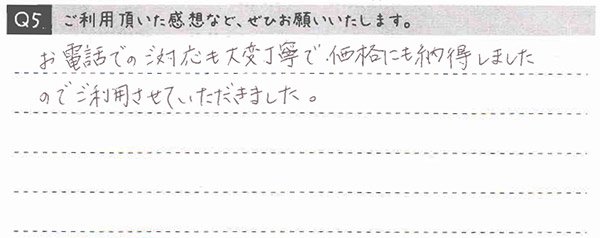 Q5. ご利用頂いた感想など、ぜひお願いいたします。
お電話でのご対応も大変丁寧で価格にも納得しました
のでご利用させていただきました。